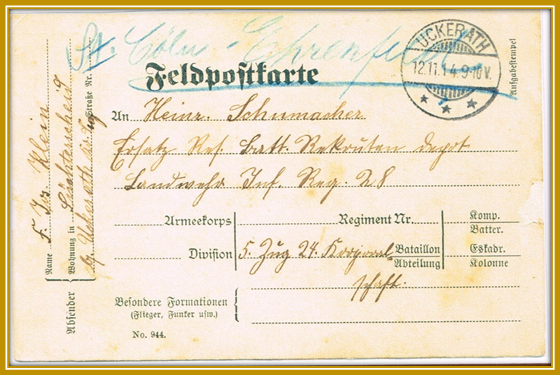 St. Cöln-Ehrenfe
UCKERATH
12.11.14.9-10V.
Feldpostkarte
Aufgabestempel
An Heinr. Schumacher
Ersatz Res. Batt. Rekruten depot
Landwehr Inf. Reg. 28
Armeekorps
Regiment Nr.
Komp.
Batter.
Division
5. Zug 24. Korporal
Bataillon
Abteilung
Eskadr.
Kolonne
schaft.
Besondere Formationen
(Flieger, Funker usw.)
No. 944.
Absender
Name F. Jos. Klein
Wohnung in Lichterscheid
Straße Nr.
Uckerath